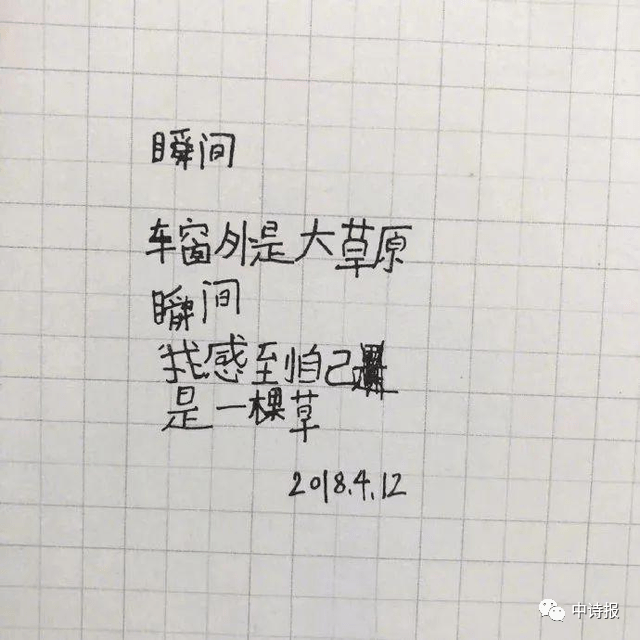 瞬间
车窗外是大草原
瞬间
我感到自己
是一棵草
2018.4.12
中诗报